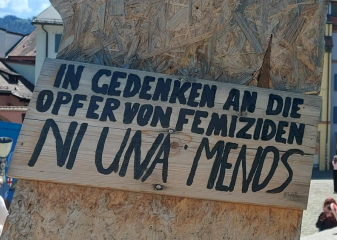 IN GEDENKEN AN DIE
OPFER VON FEMIZIDEN
NI UNA MENOS